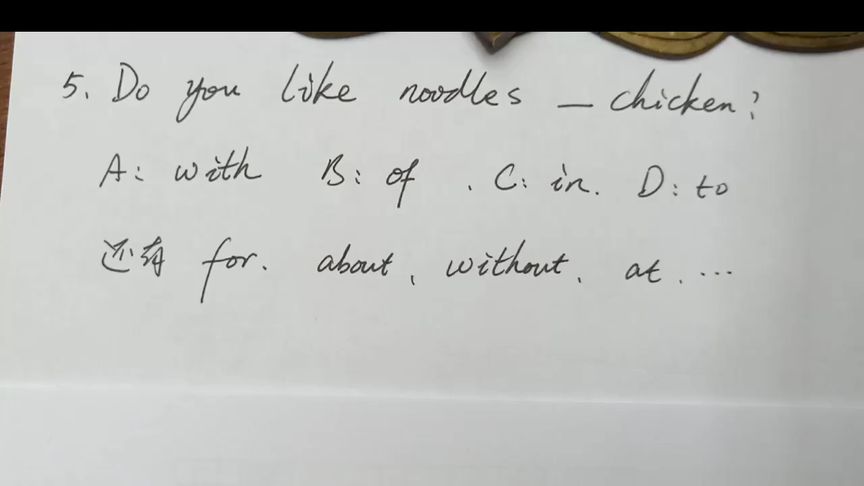 5. Do you like noodles — chicken?
A: with B: of . C: in. D: to
还有 for. about, without, at. ...